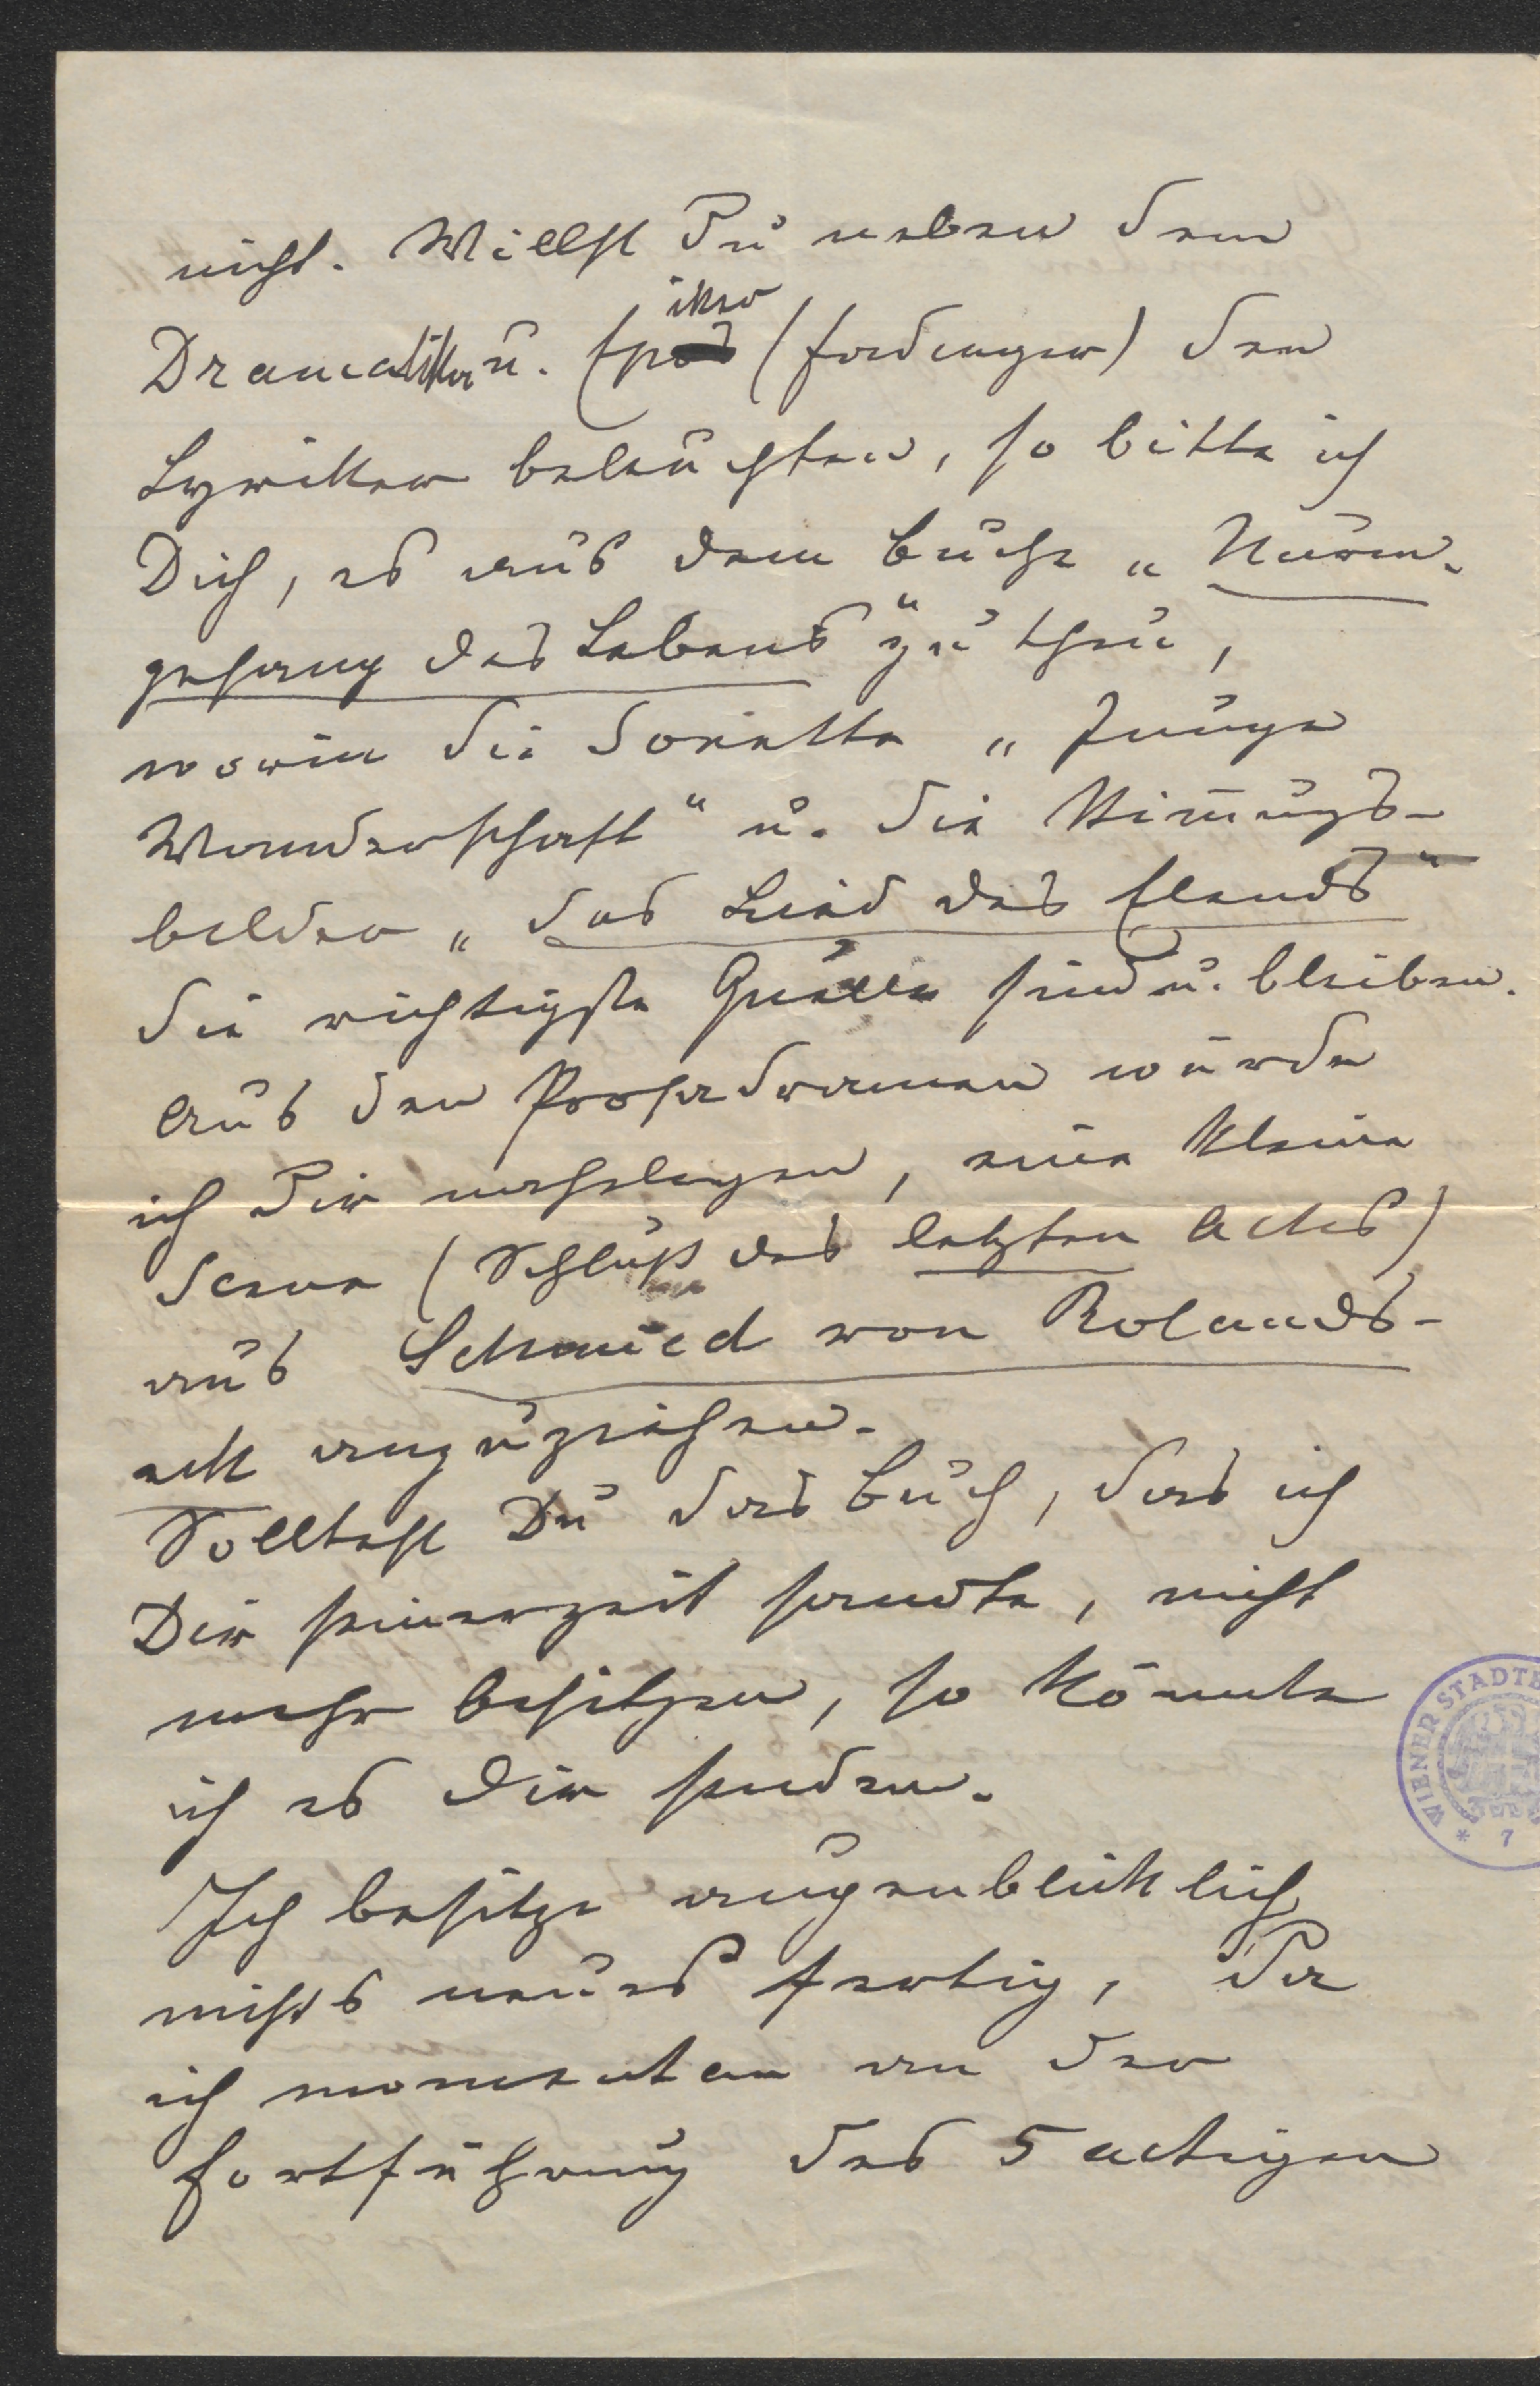 nicht. Willst Du neben dem
Dramatiker u. Epiker (Fadinger) den
Lyriker beleuchten, so bitte ich
Dich, es aus dem Buche „Sturm-
gesang des Lebens" zu thun,
worin die Sonette „Junge
Wanderschaft" u. die Stimmungs-
bilder „Das Lied des Elends"
die richtigste Quelle sind u. bleiben.
Aus den Prosadramen würde
ich Dir nahelegen, eine kleine
Scene (Schluß des letzten Actes)
aus Schmied von Rolands-
eck anzuziehen.
Solltest Du das Buch, das ich
Dir seinerzeit sandte, nicht
mehr besitzen, so könnte
ich es Dir senden.
Ich besitze augenblicklich
nichts neues fertig, da
ich momentan an der
Fortführung des 5 actigen
WIENER STADTB
* 7